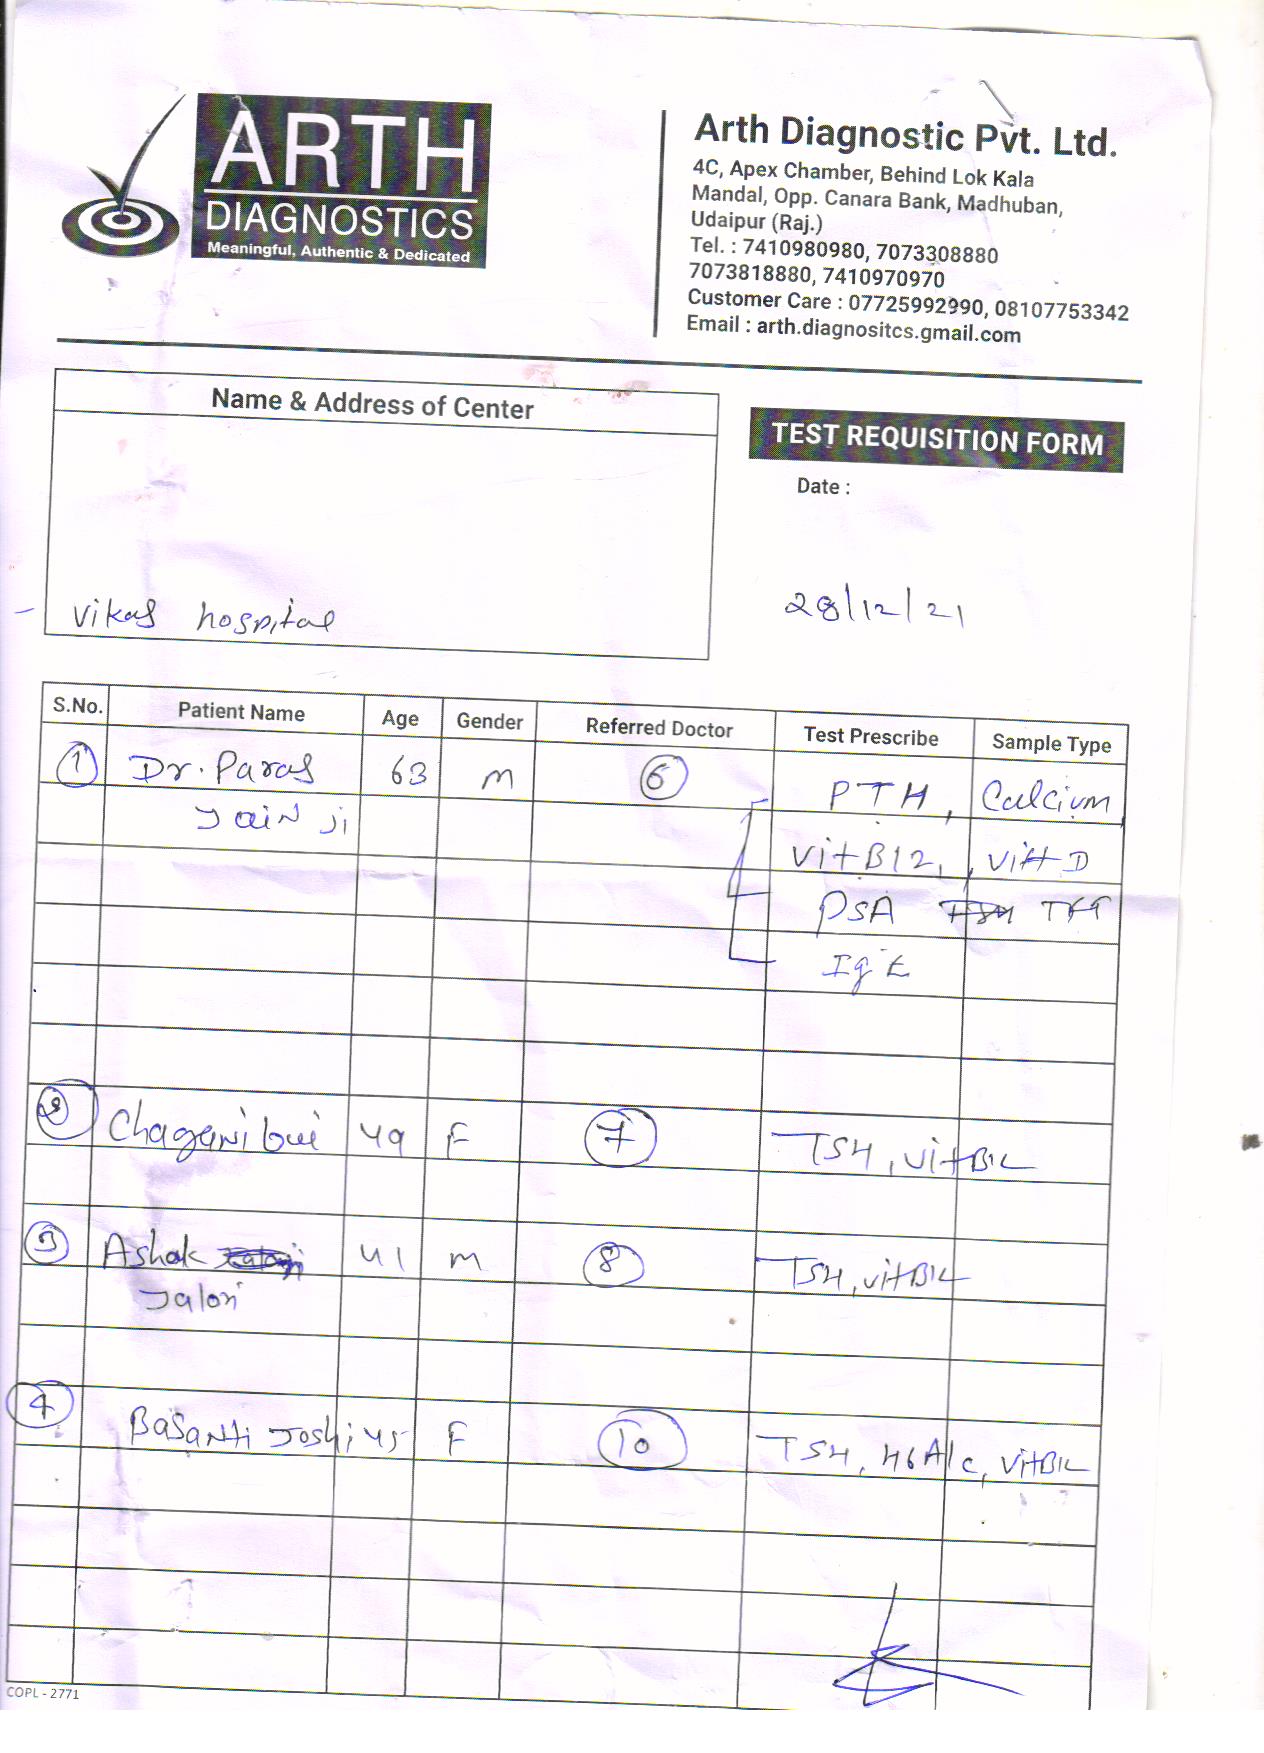 ARTH
DIAGNOSTICS
Meaningful, Authentic & Dedicated
Arth Diagnostic Pvt. Ltd.
4C, Apex Chamber, Behind Lok Kala
Mandal, Opp. Canara Bank, Madhuban,
Udaipur (Raj.)
Tel. : 7410980980, 7073308880
7073818880, 7410970970
Customer Care : 07725992990, 08107753342
Email : arth.diagnositcs.gmail.com
Name & Address of Center
Vikas hospital
TEST REQUISITION FORM
Date :
28/12/21
S.No. Patient Name Age Gender Referred Doctor Test Prescribe Sample Type
1 Dr. Paras 63 M 6 PTH, Calcium
Jain Ji
Vit B12, Vit D
PSA TFT
IgE
2 Chagani bai 49 F 7 TSH, Vit B12
3 Ashok 41 M 8 TSH, Vit B12
Jalori
4 Basanti Joshi 45 F 10 TSH, HbA1c, Vit B12
COPL - 2771